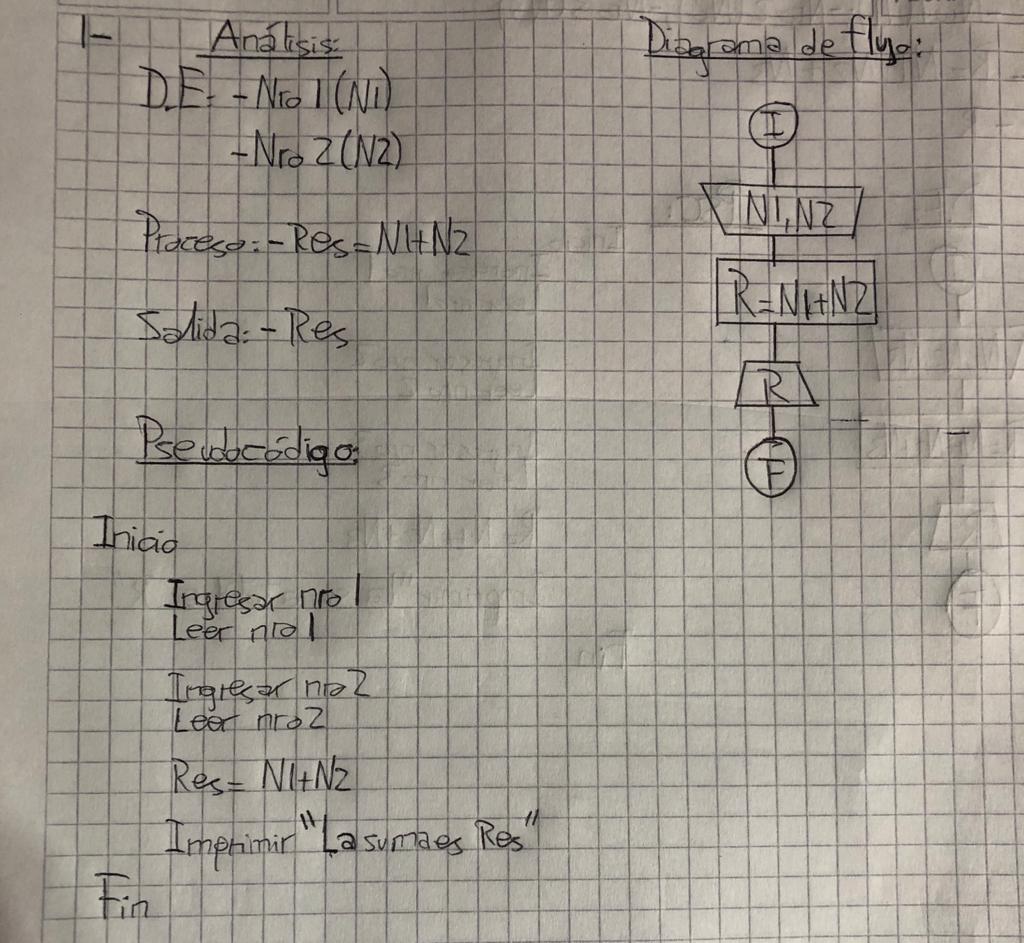 1- Análisis:
D.E: - Nro 1 (N1)
- Nro 2 (N2)
Proceso: - Res = N1+N2
Salida: - Res
Pseudocódigo:
Inicio
Ingresar nro 1
Leer nro 1
Ingresar nro 2
Leer nro 2
Res = N1+N2
Imprimir "La suma es Res"
Fin
Diagrama de flujo:
I
N1, N2
R = N1+N2
R
F